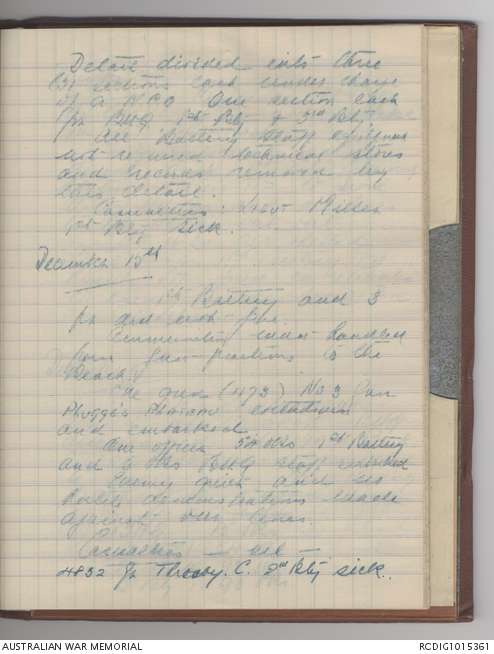 Detail divided into three
(3) sections each under charge
of a NCO One section each
for BHQ 1st Bty & 3rd Bty.
All Battery Staff equipment
not required technical stores
and records removed by
this detail.
Casualties: Lieut Miller
1st Bty sick.
December 15th
1st Battery and 3
for did not fire.
Ammunition was handled
from gun positions to the
Beach.
One gun (473) No 3 Gun
Phogg's Phorum withdrawn
and embarked.
One officer 54 ORs 1st Battery
and 6 ORs BHQ Staff embarked
Enemy quiet and no
hostile demonstrations made
against our lines.
Casualties — nil —
4832 Gr Throsby. C. 2nd Bty sick.
AUSTRALIAN WAR MEMORIAL
RCDIG1015361